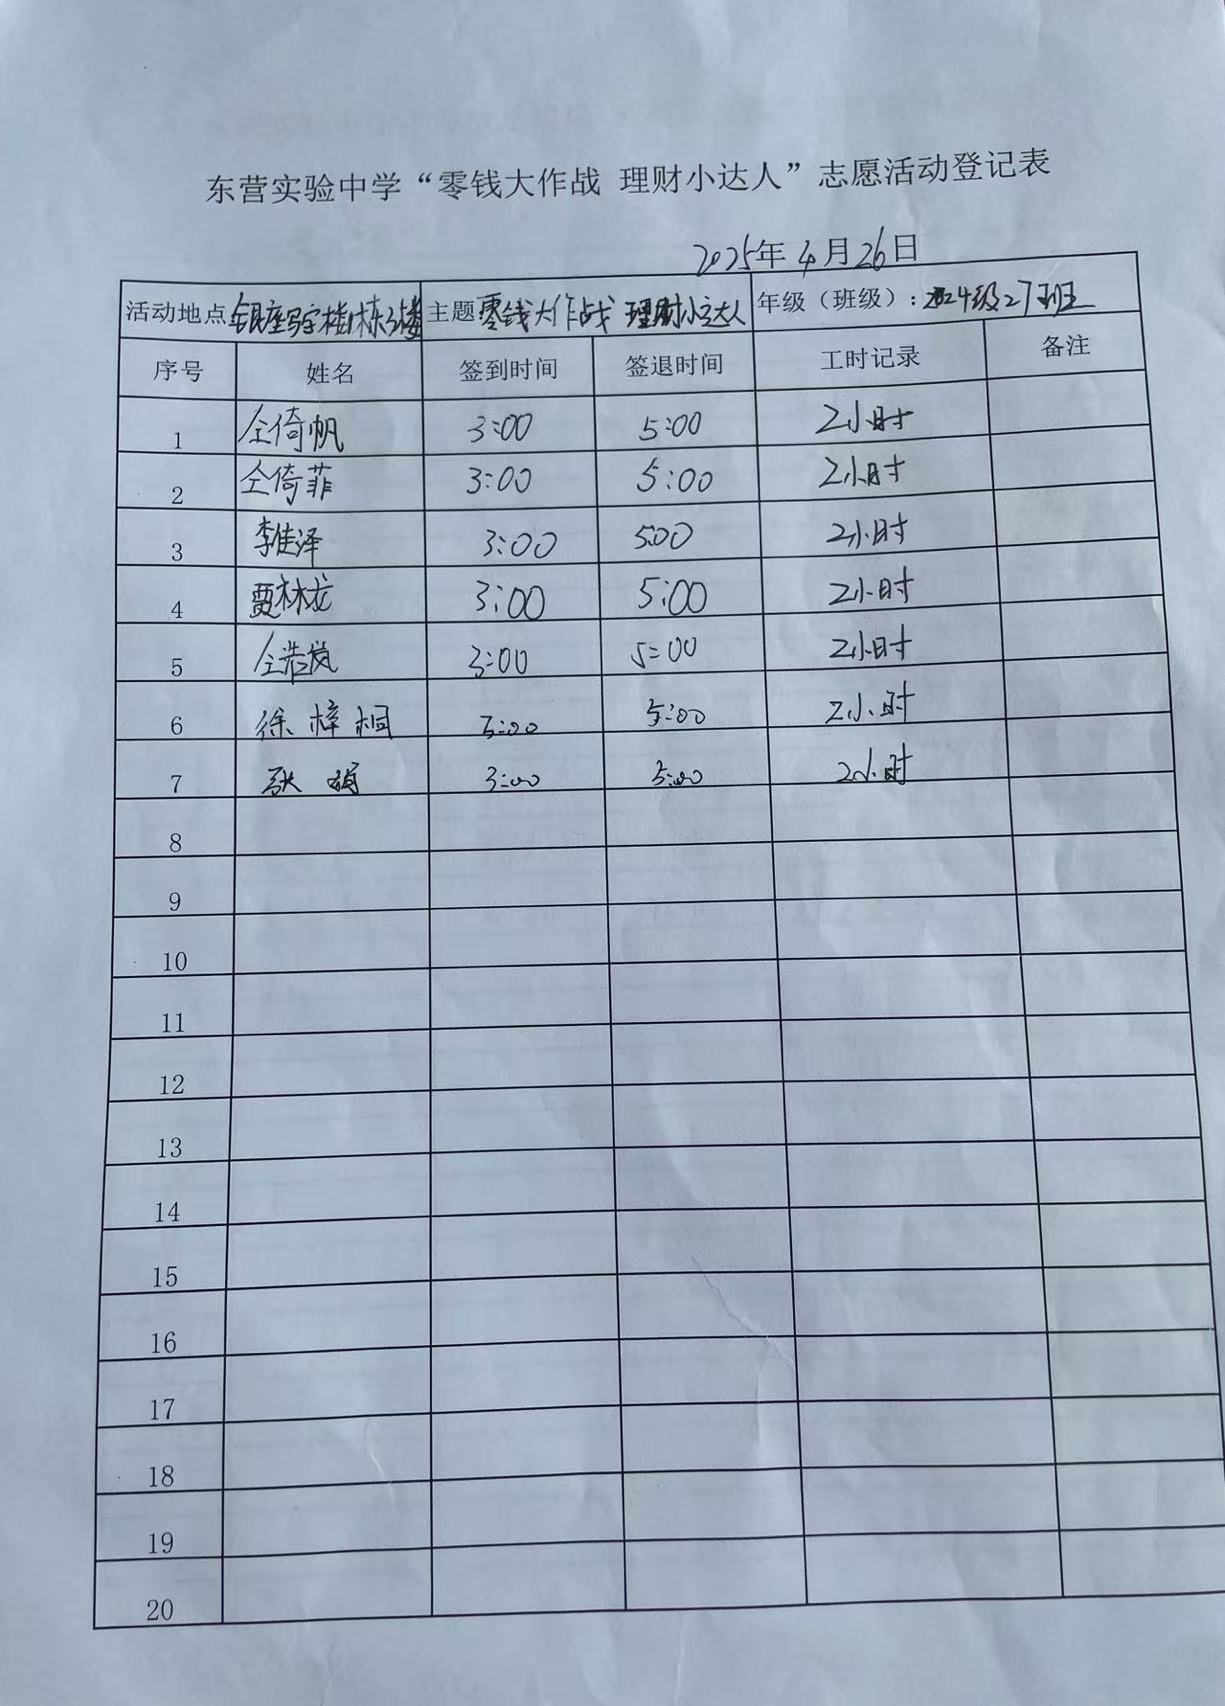 东营实验中学“零钱大作战 理财小达人”志愿活动登记表
2025年4月26日
活动地点 银座写字楼1栋3楼 主题 零钱大作战 理财小达人 年级（班级）：2024级27班
序号 姓名 签到时间 签退时间 工时记录 备注
1 仝倚帆 3:00 5:00 2小时
2 仝倚菲 3:00 5:00 2小时
3 李佳泽 3:00 5:00 2小时
4 贾林龙 3:00 5:00 2小时
5 仝浩岚 3:00 5:00 2小时
6 徐梓桐 3:00 5:00 2小时
7 张 3:00 5:00 2小时
8
9
10
11
12
13
14
15
16
17
18
19
20